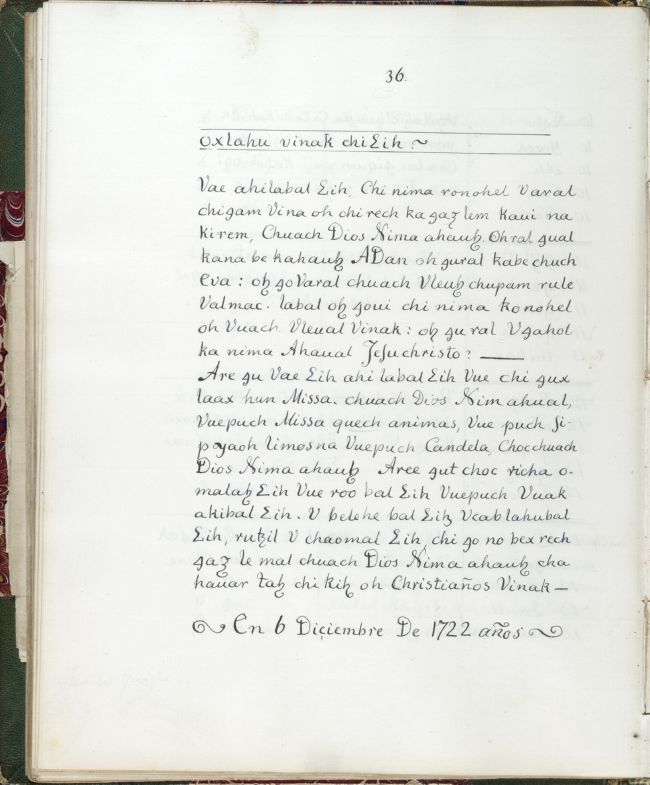 36.
oxlahu vinak chi Ɛih ~
Vae ahilabal Ɛih, Chi nima ronohel varal
chigam Vina oh chi rech ka gaꜫ lem kaui na
kirem, Chuach Dios Nima ahauꜫ. Oh ral gual
kana be kahauꜫ ADan oh gural kabe chuch
eva: oꜫ go Varal chuach Vleuꜫ chupam rule
Valmac. labal oꜫ goui chi nima konohel
oh Vuach Vleual Vinak: oꜫ gu ral Vgahol
ka nima Ahaual Jesuchristo? —
Are gu Vae Ɛih ahi labal Ɛih Vue chi gux
laax hun Missa. chuach Dios Nim ahual,
Vuepuch Missa quech animas, Vue puch si-
poyaoh limosna Vuepuch Candela, Choc chuach
Dios Nima ahauꜫ Aree gut choc richa o-
malaꜫ Ɛih Vue roo bal Ɛih Vuepuch Vuak
akibal Ɛih. V belehe bal Ɛiꜫ Vcab lahubal
Ɛih, rutꜫil V chaomal Ɛih, chi go no bex rech
gaꜫ le mal chuach Dios Nima ahauꜫ cha
hauar taꜫ chi kiꜫ oh Christiaños Vinak —
En 6 Diciembre De 1722 años